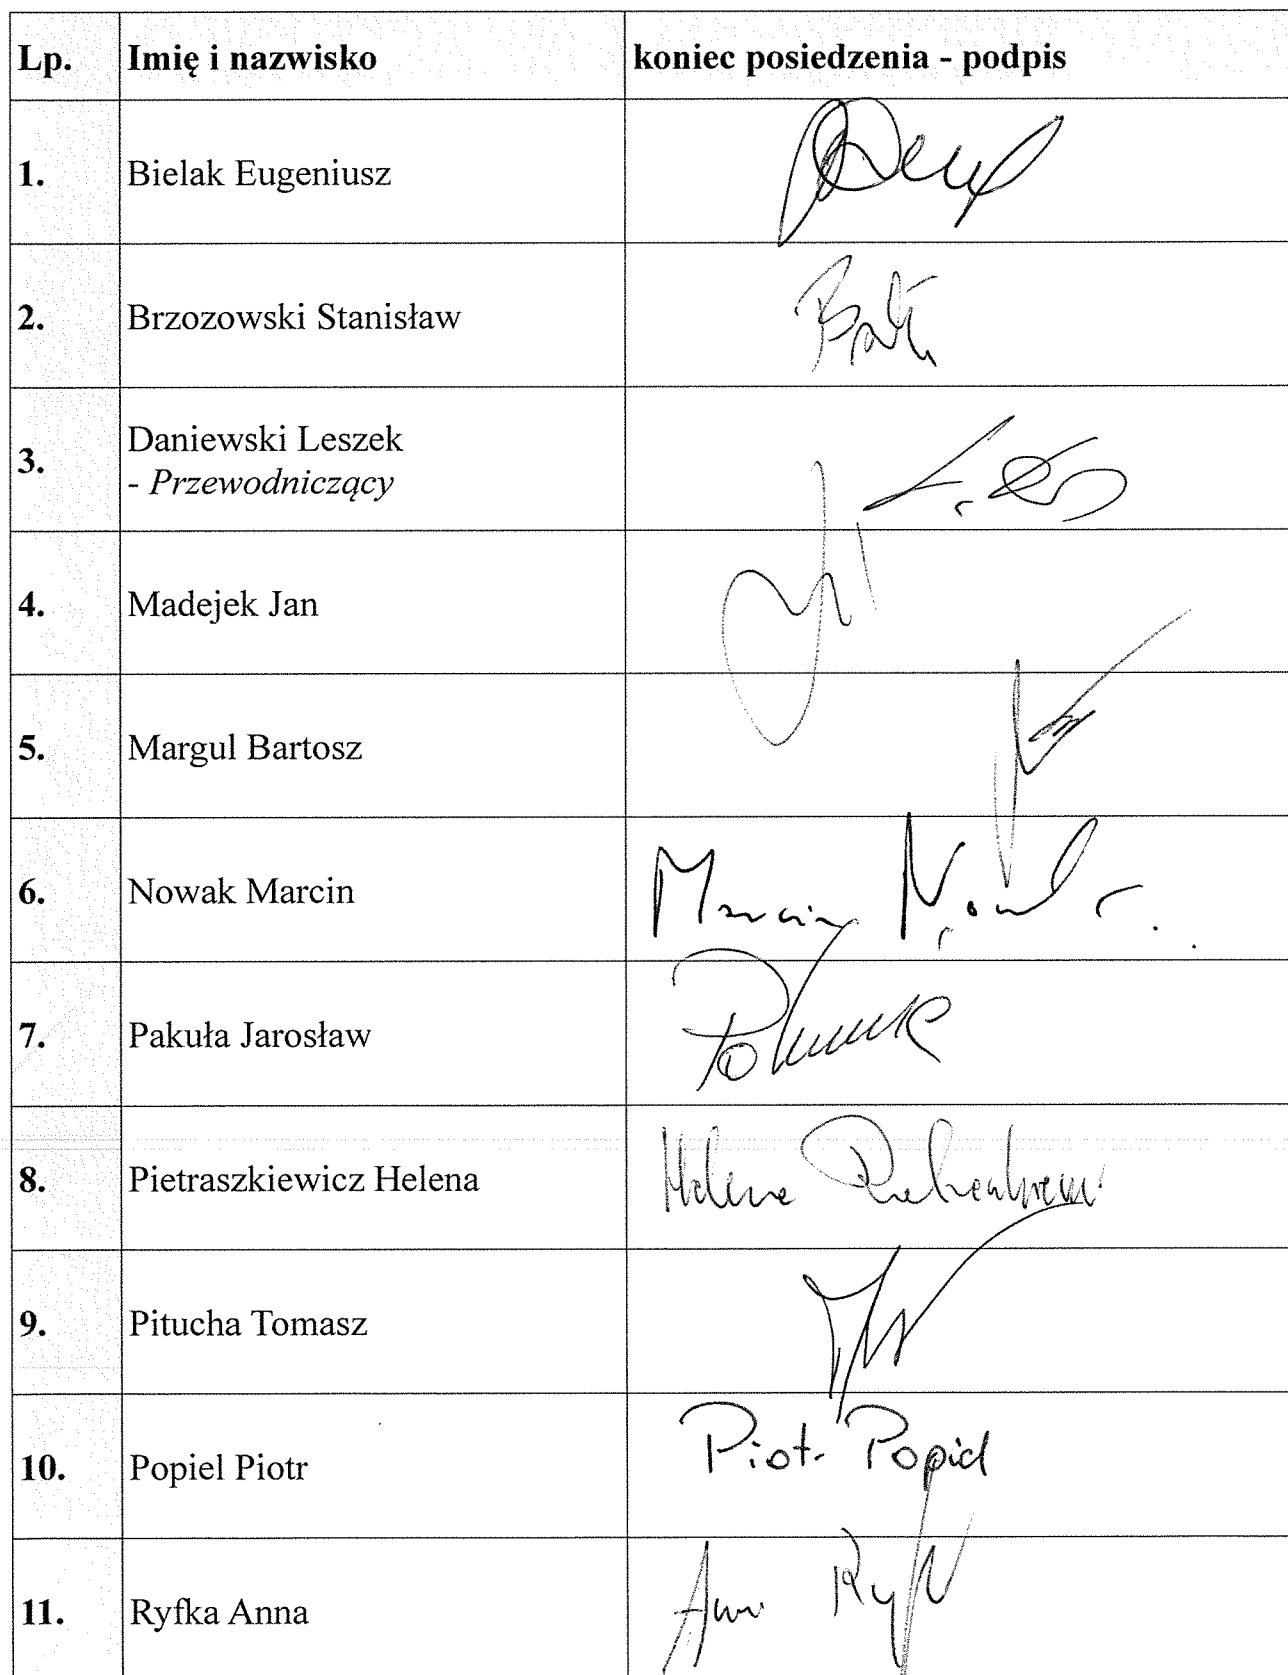 Lp. Imię i nazwisko koniec posiedzenia - podpis
1. Bielak Eugeniusz
2. Brzozowski Stanisław
3. Daniewski Leszek
- Przewodniczący
4. Madejek Jan
5. Margul Bartosz
6. Nowak Marcin Marcin Nowak
7. Pakuła Jarosław
8. Pietraszkiewicz Helena Helena
9. Pitucha Tomasz
10. Popiel Piotr Piotr Popiel
11. Ryfka Anna